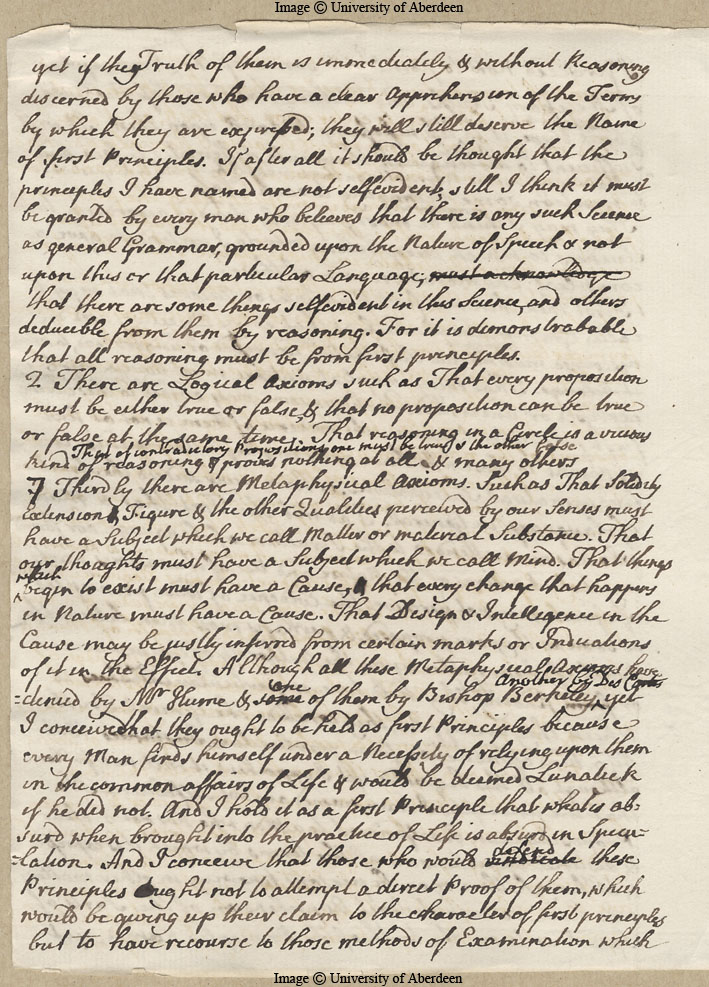 Image © University of Aberdeen
yet if the Truth of them is immediately & without Reasoning
discerned by those who have a clear Apprehension of the Terms
by which they are expressed; they will still deserve the Name
of first Principles. If after all it should be thought that the
principles I have named are not selfevident, still I think it must
be granted by every man who believes that there is any such Science
as general Grammar, grounded upon the Nature of Speech & not
upon this or that particular Language, must acknowledge
that there are some things selfevident in this Science, and others
deducible from them by reasoning. For it is demonstrabable
that all reasoning must be from first principles.
2 There are Logical Axioms such as That every proposition
must be either true or false, & that no proposition can be true
or false at the same time, That reasoning in a Circle is a vicious
That of contradictory Propositions one must be true & the other false
kind of reasoning & proves nothing at all & many others
3 Thirdly there are Metaphysical Axioms. Such as That Solidity
Extension Figure & the other Qualities perceived by our Senses must
have a Subject which we call Matter or material Substance. That
our thoughts must have a Subject which we call Mind. That things
which
begin to exist must have a Cause, that every change that happens
in Nature must have a Cause. That Design & Intelligence in the
Cause may be justly inferred from certain marks or Indications
of it in the Effect. Although all these Metaphysical Axioms have
one another by Des Cartes
=denied by Mr Hume & some of them by Bishop Berkeley, yet
I conceive that they ought to be held as first Principles because
every Man finds himself under a Necessity of relying upon them
in the common affairs of Life & would be deemed Lunatick
if he did not. And I hold it as a first Principle that what is ab=
surd when brought into the practice of Life is absurd in Specu=
defend
=lation. And I conceive that those who would vindicate these
Principles ought not to attempt a direct Proof of them, which
would be giving up their claim to the character of first principles
but to have recourse to those methods of Examination which
Image © University of Aberdeen